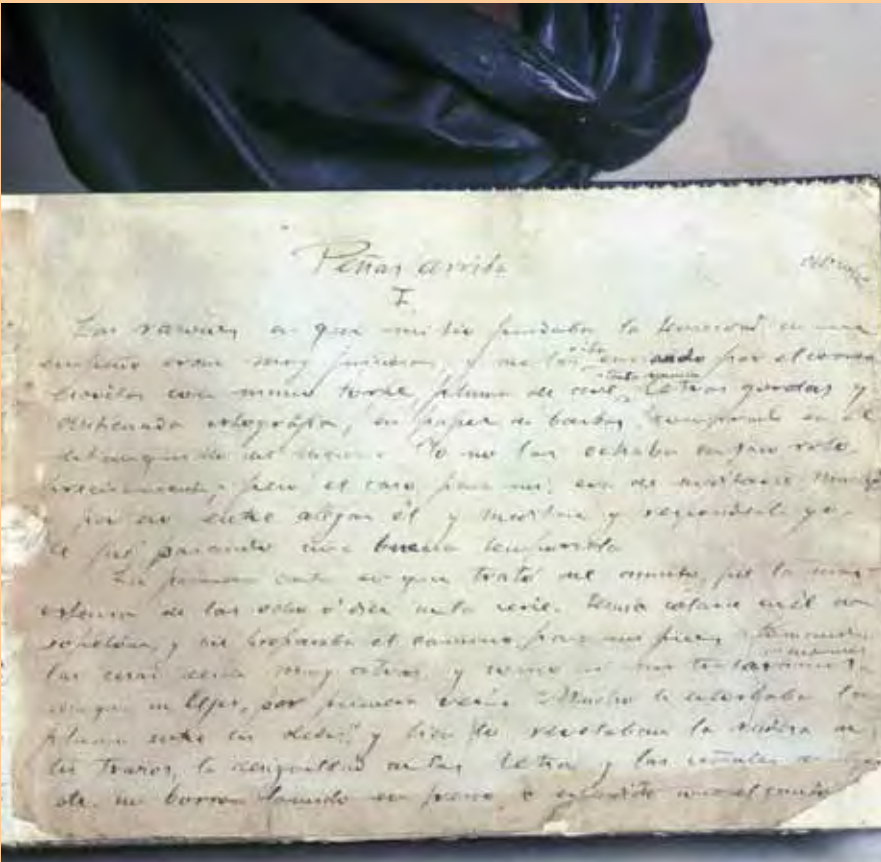 Peñas arriba
I
Las razones en que mi tío fundaba la tenacidad de su
empeño eran muy juiciosas, y me las iba enviando por el correo
escritas con mano torpe, pluma de ave, tinta rancia, letras gordas y
anticuada ortografía, en papel de barbas comprado en el
estanquillo del lugar. Yo no las echaba en saco roto
precisamente; pero el caso, para mi, era de meditarse mucho
y por eso entre alegar él y meditar y responderle yo
se fué pasando una buena temporada
La primera carta en que trató del asunto, fué la mas
extensa de las ocho ó diez de la serie. Temía colarse en él de
sopetón, y me preparaba el camino para sus fines tomando
las cosas desde muy atras, y como si nos tratáramos
aunque de lejos, por primera vez. "Mucho le estorbaba la
pluma entre los dedos", y bien lo revelaban la rudeza de
los trazos, la desigualdad de las letras y las señales de mas
de un borron lamido en fresco, o extendido con el canto